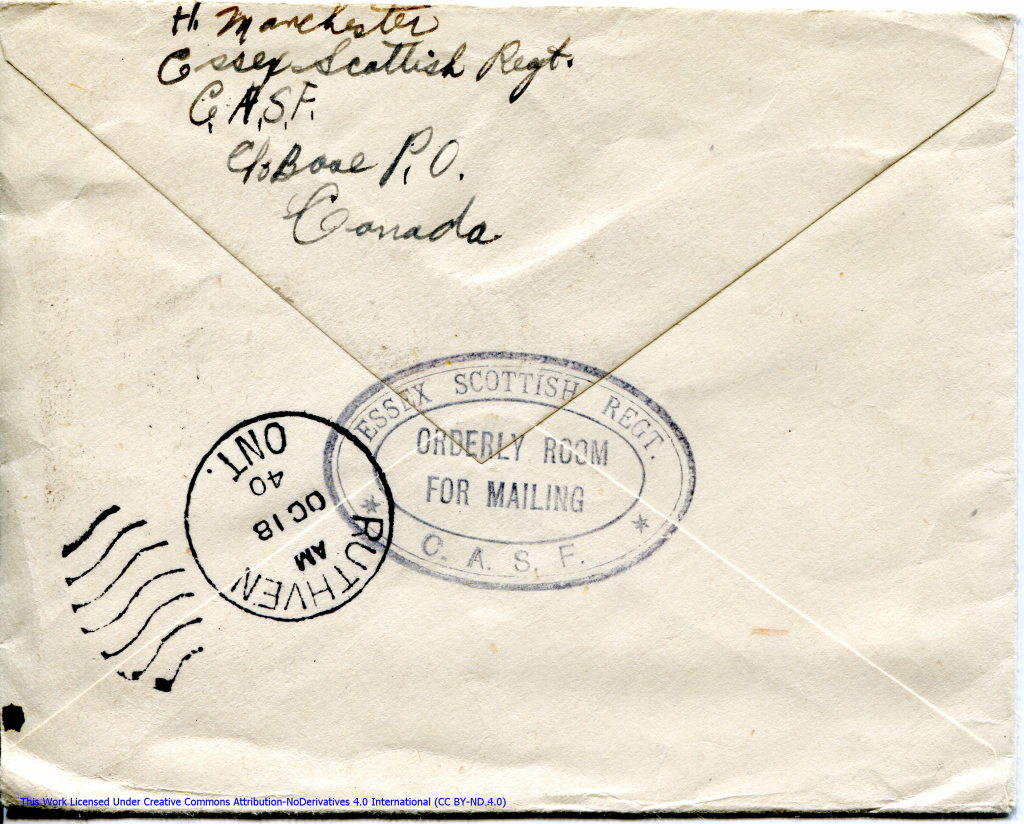 H. Manchester
Essex Scottish Regt.
C.A.S.F.
c/o Base P.O.
Canada
ESSEX SCOTTISH REGT.
ORDERLY ROOM
FOR MAILING
C. A. S. F.
RUTHVEN
AM
OC 18
40
ONT.
This Work Licensed Under Creative Commons Attribution-NoDerivatives 4.0 International (CC BY-ND 4.0)